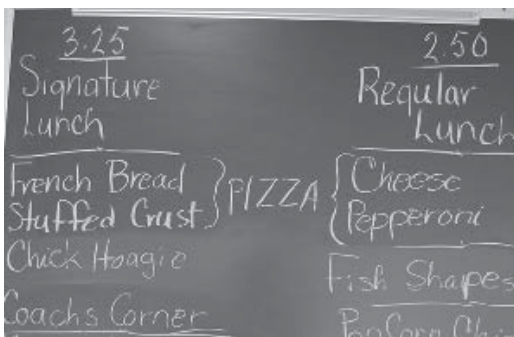 3.25
Signature
Lunch
French Bread
Stuffed Crust
PIZZA
Chick Hoagie
Coachs Corner
2.50
Regular
Lunch
Cheese
Pepperoni
Fish Shapes
PopCorn